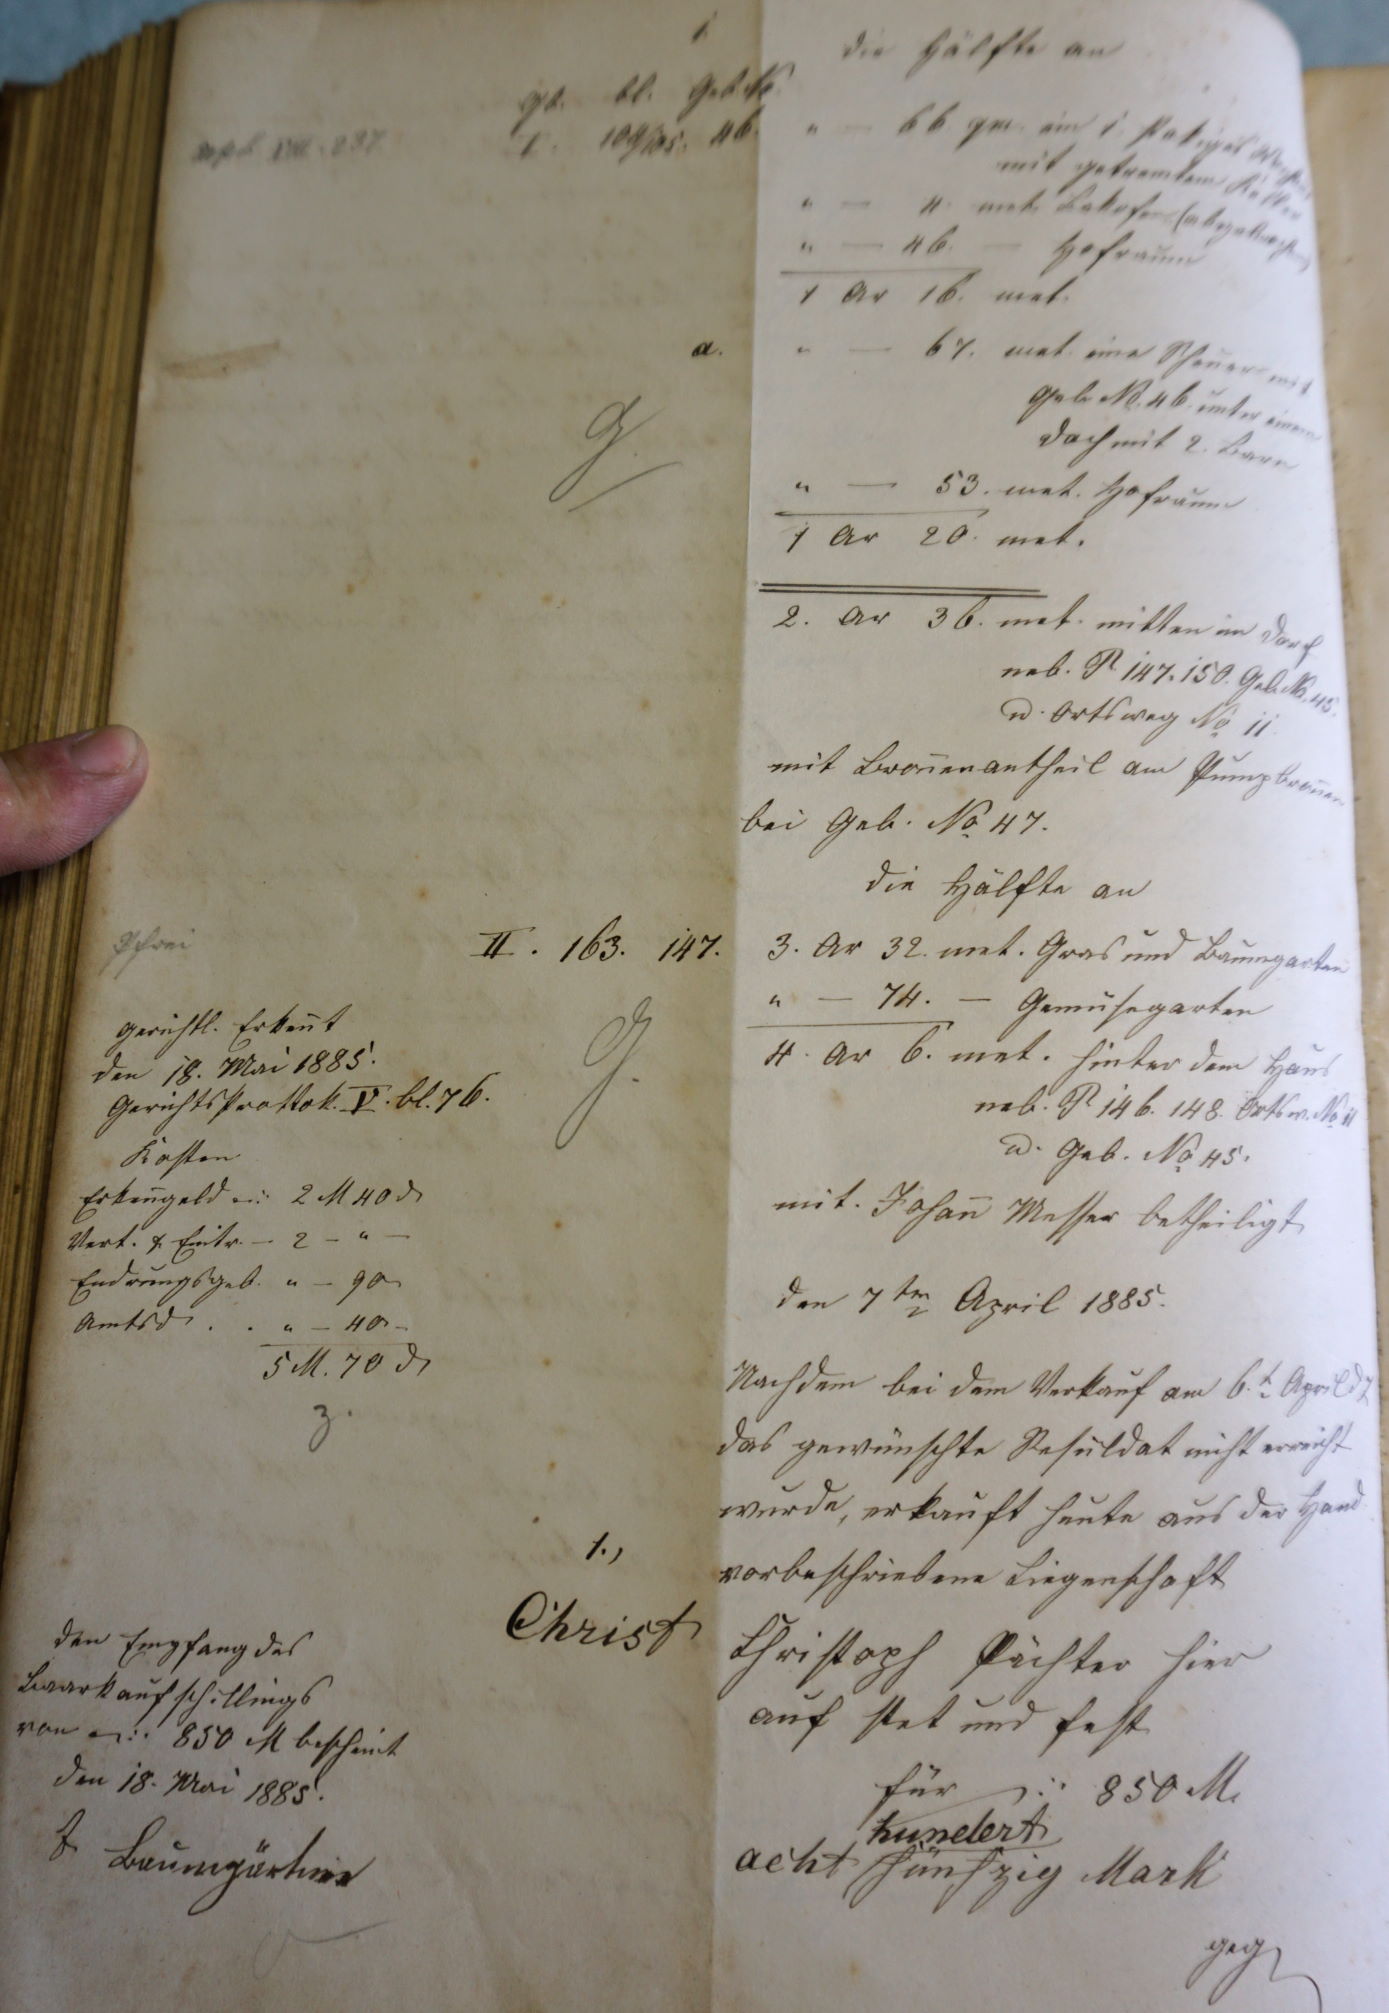 1
die Hälfte an
Gb. bl. Geb. No.
I. 104/105. 46. " — 66 qm. ein 1. stokiges
mit getremtem Keller
" — 4. met. Bakofen (abgebrochen)
" — 46. — Hofraum
1 Ar 16. met.
a. " — 67. met. eine Scheuer mit
Geb. No. 46. unter einem
Dach mit 2. Barn
" — 53. met. Hofraum
1 Ar 20. met.
2. Ar 36. met. mitten im Dorf
neb. P. 147. 150. Geb. No. 45.
u. Ortsweg No 11.
mit Brońenantheil am Pumpbrońen
bei Geb. No 47.
die Hälfte an
II. 163. 147. 3. Ar 32. met. Gras und Baumgarten
" — 74. — Gemüsegarten
4. Ar 6. met. hinter dem Haus
neb. P. 146. 148. Ortsw. No 11
u. Geb. No 45.
mit. Johań Messer betheiligt
den 7ten April 1885.
Nachdem bei dem Verkauf am 6.t April
das gewünschte Resuldat nicht erreicht
wurde, erkauft heute aus der Hand
vorbeschriebene Liegenschaft
1.,
Christ
Christoph Pächter hier
auf stet und fest
für 850 M.
hundert
acht fünfzig Mark
geg
Pfrei
gerichtl. Erkeńt
den 18. Mai 1885.
Gerichts Prottok. V. bl. 76.
Kosten
Erkeńgeld 2 M 40 d
Vert. & Eintr. — 2 — " —
Endrungsgeb. " — 90
Amtsd. . . " — 40 —
5 M. 70 d
z.
den Empfang des
Baarkaufschillings
von 850 M bescheint
den 18. Mai 1885.
Baumgärtner